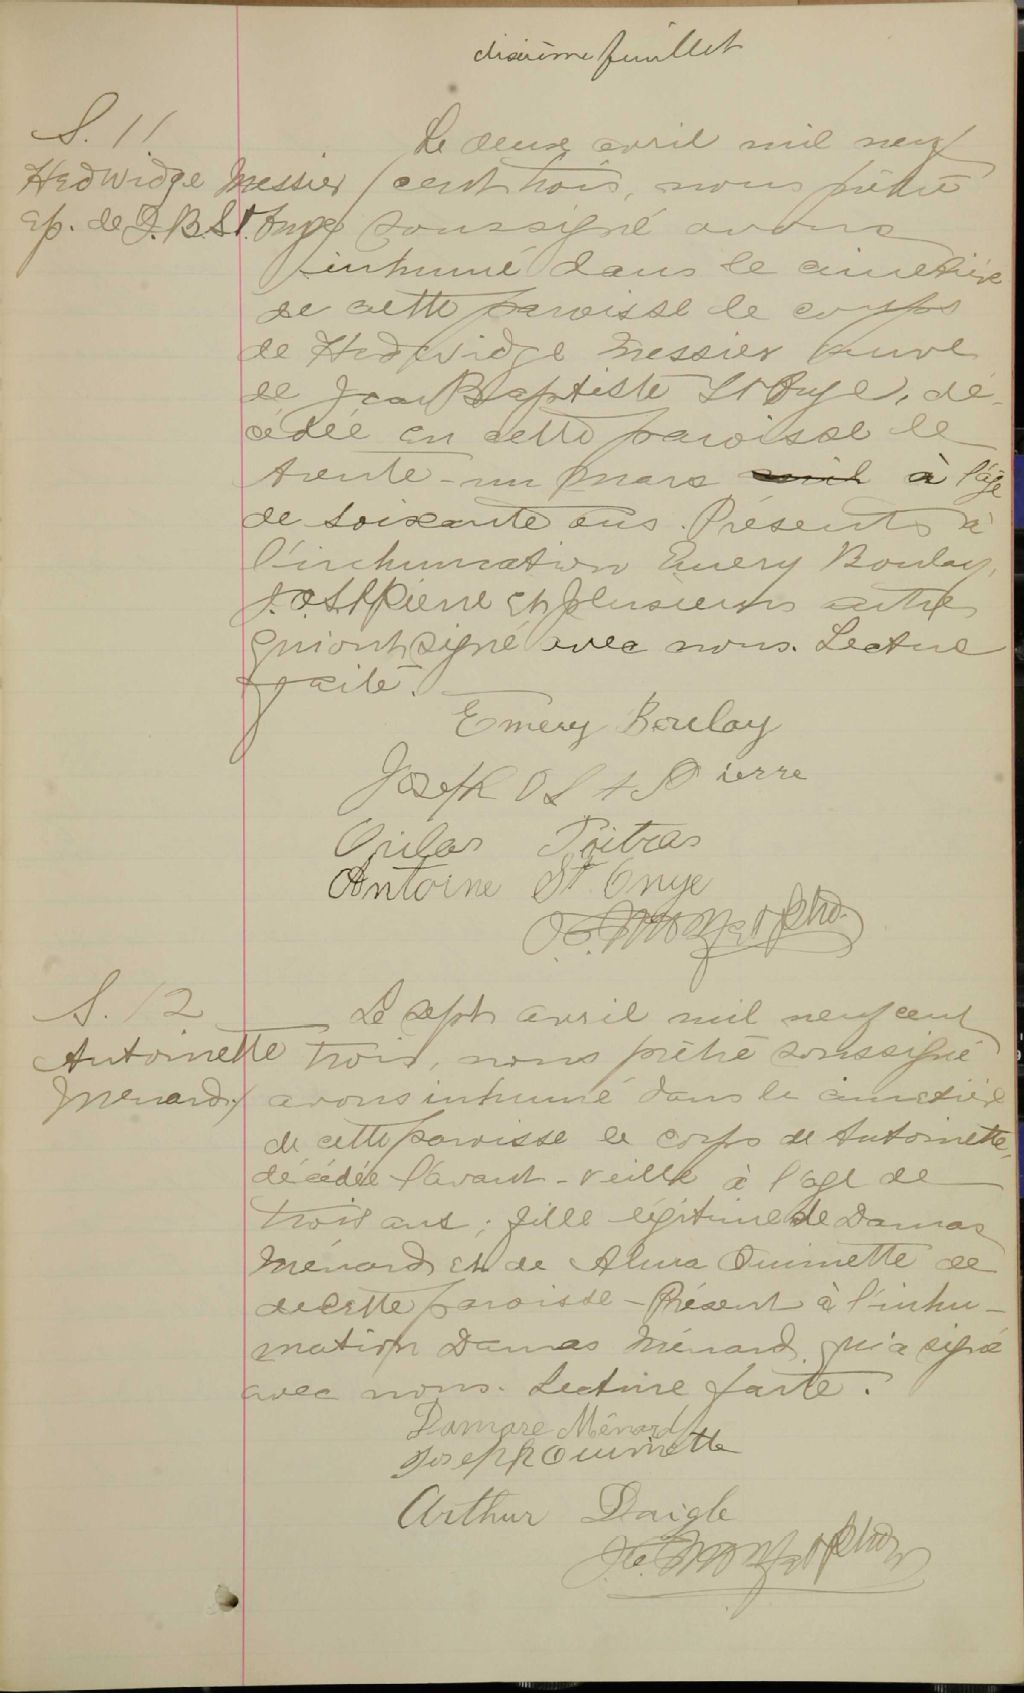 dixième feuillet
S. 11
Hedwidge Messier
ép. de J. B. St. Onge
Le deux avril mil neuf
cent trois, nous prêtre
soussigné avons
inhumé dans le cimetière
de cette paroisse le corps
de Hedwidge Messier veuve
de Jean Baptiste St Onge, dé-
cédée en cette paroisse le
trente-un mars à l'âge
de soixante ans. Présents à
l'inhumation Emery Boulay,
J. O. St Pierre et plusieurs autres
qui ont signé avec nous. Lecture
faite.
Emery Boulay
Joseph O St Pierre
Poitras
Antoine St. Onge
Ptre.
S. 12
Antoinette
Ménard
Le sept avril mil neuf cent
trois, nous prêtre soussigné
avons inhumé dans le cimetière
de cette paroisse le corps de Antoinette,
décédée l'avant-veille à l'age de
trois ans; fille légitime de Damas
Ménard et de Ouimette de
de cette paroisse - Présent à l'inhu-
mation Damas Ménard qui a signé
avec nous. Lecture faite.
Damase Ménard
Joseph Ouimette
Arthur Daigle
Ptre